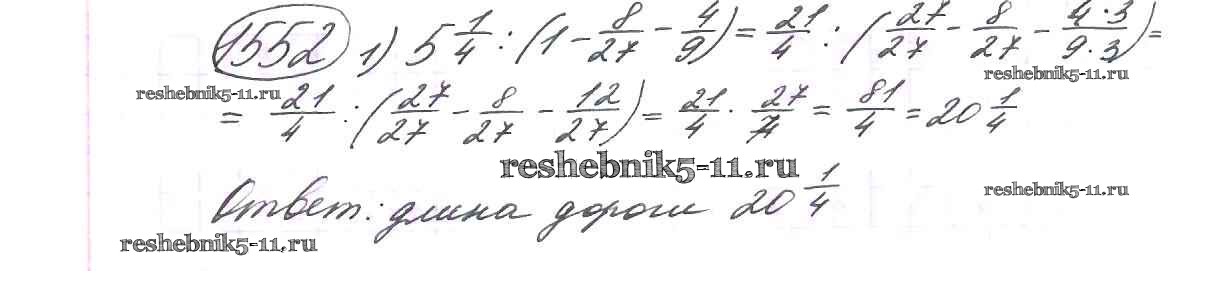 1552 1) 5 1/4 : (1 - 8/27 - 4/9) = 21/4 : (27/27 - 8/27 - 4·3/9·3) =
reshebnik5-11.ru
reshebnik5-11.ru
= 21/4 : (27/27 - 8/27 - 12/27) = 21/4 · 27/7 = 81/4 = 20 1/4
reshebnik5-11.ru
Ответ: длина дороги 20 1/4
reshebnik5-11.ru
reshebnik5-11.ru